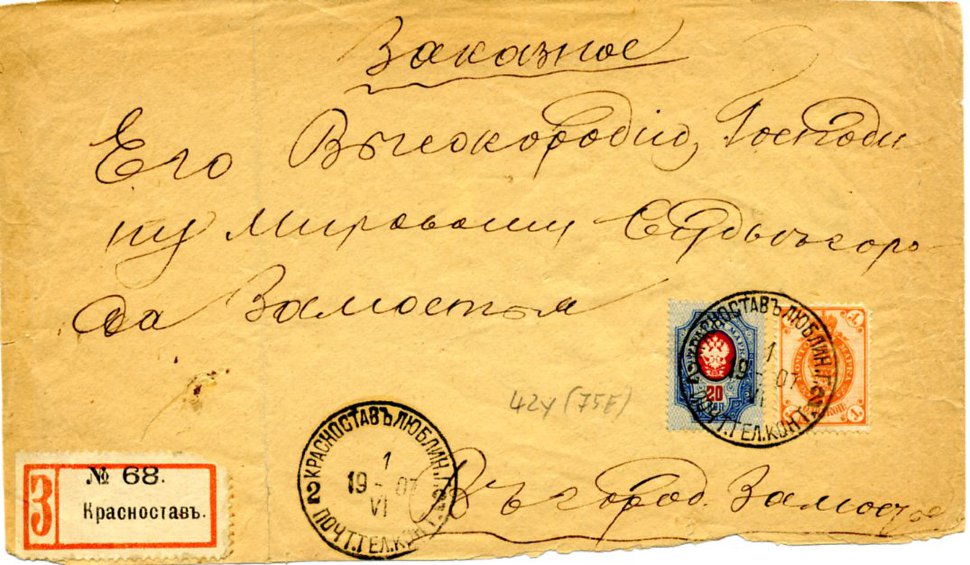 Заказное
Его Высокородію, Господи
ну Мировому Судьѣ горо-
да Замостья
1
КРАСНОСТАВЪ ЛЮБЛИН.Г.
19-07
VI
2 ПОЧТ.ТЕЛ.КОНТ. 2
20
1
1
42y (75E)
КРАСНОСТАВЪ ЛЮБЛИН.Г.
1
19-07
VI
2 ПОЧТ.ТЕЛ.КОНТ. 2
Въ город. Замостье
З
№ 68.
Красноставъ.